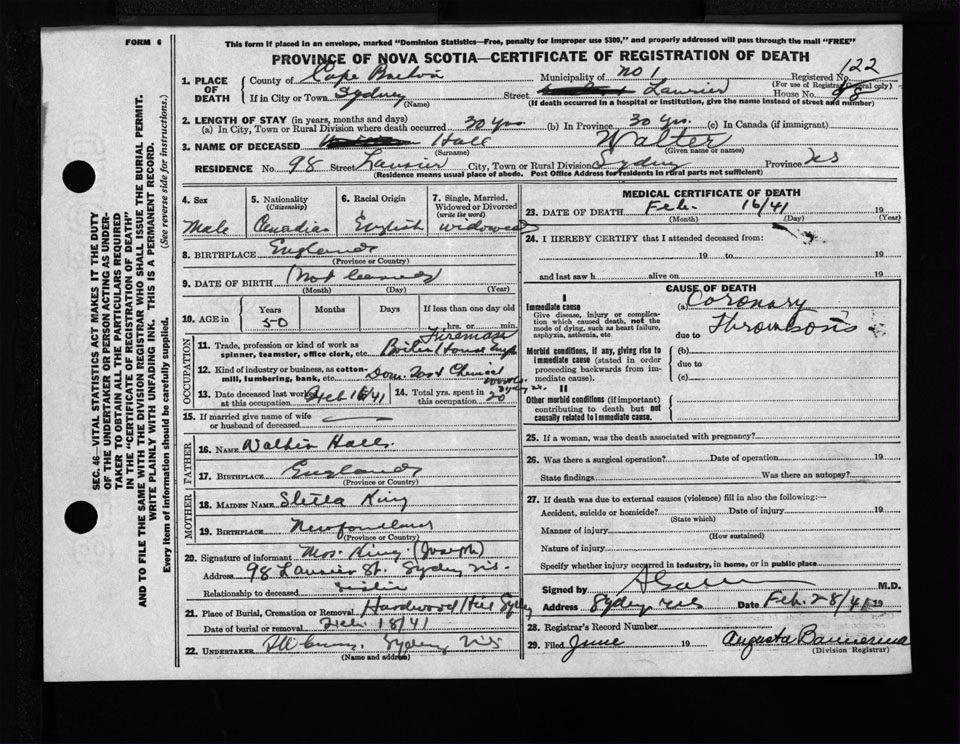 FORM 6
This form if placed in an envelope, marked "Dominion Statistics—Free, penalty for improper use $300," and properly addressed will pass through the mail "FREE"
PROVINCE OF NOVA SCOTIA—CERTIFICATE OF REGISTRATION OF DEATH
1. PLACE OF DEATH County of Cape Breton Municipality of No 1 Registered No. 122
(For use of Registrar General only)
If in City or Town Sydney (Name) Street Laurier House No. 98
(If death occurred in a hospital or institution, give the name instead of street and number)
2. LENGTH OF STAY (in years, months and days)
(a) In City, Town or Rural Division where death occurred 30 yrs. (b) In Province 30 yrs. (c) In Canada (if immigrant)
3. NAME OF DECEASED Hall (Surname) Walter (Given name or names)
RESIDENCE No. 98 Street Laurier City, Town or Rural Division Sydney Province NS
(Residence means usual place of abode. Post Office Address for residents in rural parts not sufficient)
4. Sex Male
5. Nationality (Citizenship) Canadian
6. Racial Origin English
7. Single, Married, Widowed or Divorced (write the word) widowed
8. BIRTHPLACE England
(Province or Country)
9. DATE OF BIRTH (Not learned)
(Month) (Day) (Year)
10. AGE in Years 50 Months Days If less than one day old hrs. or min.
OCCUPATION
11. Trade, profession or kind of work as spinner, teamster, office clerk, etc. Fireman Boiler House
12. Kind of industry or business, as cotton-mill, lumbering, bank, etc.
13. Date deceased last worked at this occupation Feb 16/41
14. Total yrs. spent in this occupation 20
15. If married give name of wife or husband of deceased
FATHER
16. NAME Walter Hall
17. BIRTHPLACE England
(Province or Country)
MOTHER
18. MAIDEN NAME King
19. BIRTHPLACE Newfoundland
(Province or Country)
20. Signature of informant Mrs. King (Joseph)
Address 98 Laurier St. Sydney NS.
Relationship to deceased
21. Place of Burial, Cremation or Removal Hardwood Hill Sydney
Date of burial or removal Feb. 18/41
22. UNDERTAKER Sydney NS
(Name and address)
MEDICAL CERTIFICATE OF DEATH
23. DATE OF DEATH Feb. 16/41 19
(Month) (Day) (Year)
24. I HEREBY CERTIFY that I attended deceased from:
19 to 19
and last saw h alive on 19
CAUSE OF DEATH
I
Immediate cause (a) Coronary
Give disease, injury or complication which caused death, not the mode of dying, such as heart failure, asphyxia, asthenia, etc. due to Thrombosis
Morbid conditions, if any, giving rise to immediate cause (stated in order proceeding backwards from immediate cause). (b) due to (c)
II
Other morbid conditions (if important) contributing to death but not causally related to immediate cause.
25. If a woman, was the death associated with pregnancy?
26. Was there a surgical operation? Date of operation 19
State findings Was there an autopsy?
27. If death was due to external causes (violence) fill in also the following:—
Accident, suicide or homicide? Date of injury 19
(State which)
Manner of injury
(How sustained)
Nature of injury
Specify whether injury occurred in industry, in home, or in public place
Signed by M.D.
Address Sydney NS Date Feb. 28/41 19
28. Registrar's Record Number
29. Filed June 19 Augusta
(Division Registrar)
SEC. 46—VITAL STATISTICS ACT MAKES IT THE DUTY OF THE UNDERTAKER OR PERSON ACTING AS UNDERTAKER TO OBTAIN ALL THE PARTICULARS REQUIRED IN THE "CERTIFICATE OF REGISTRATION OF DEATH"
AND TO FILE THE SAME WITH THE DIVISION REGISTRAR WHO SHALL ISSUE THE BURIAL PERMIT.
WRITE PLAINLY WITH UNFADING INK. THIS IS A PERMANENT RECORD.
Every item of information should be carefully supplied. (See reverse side for instructions.)